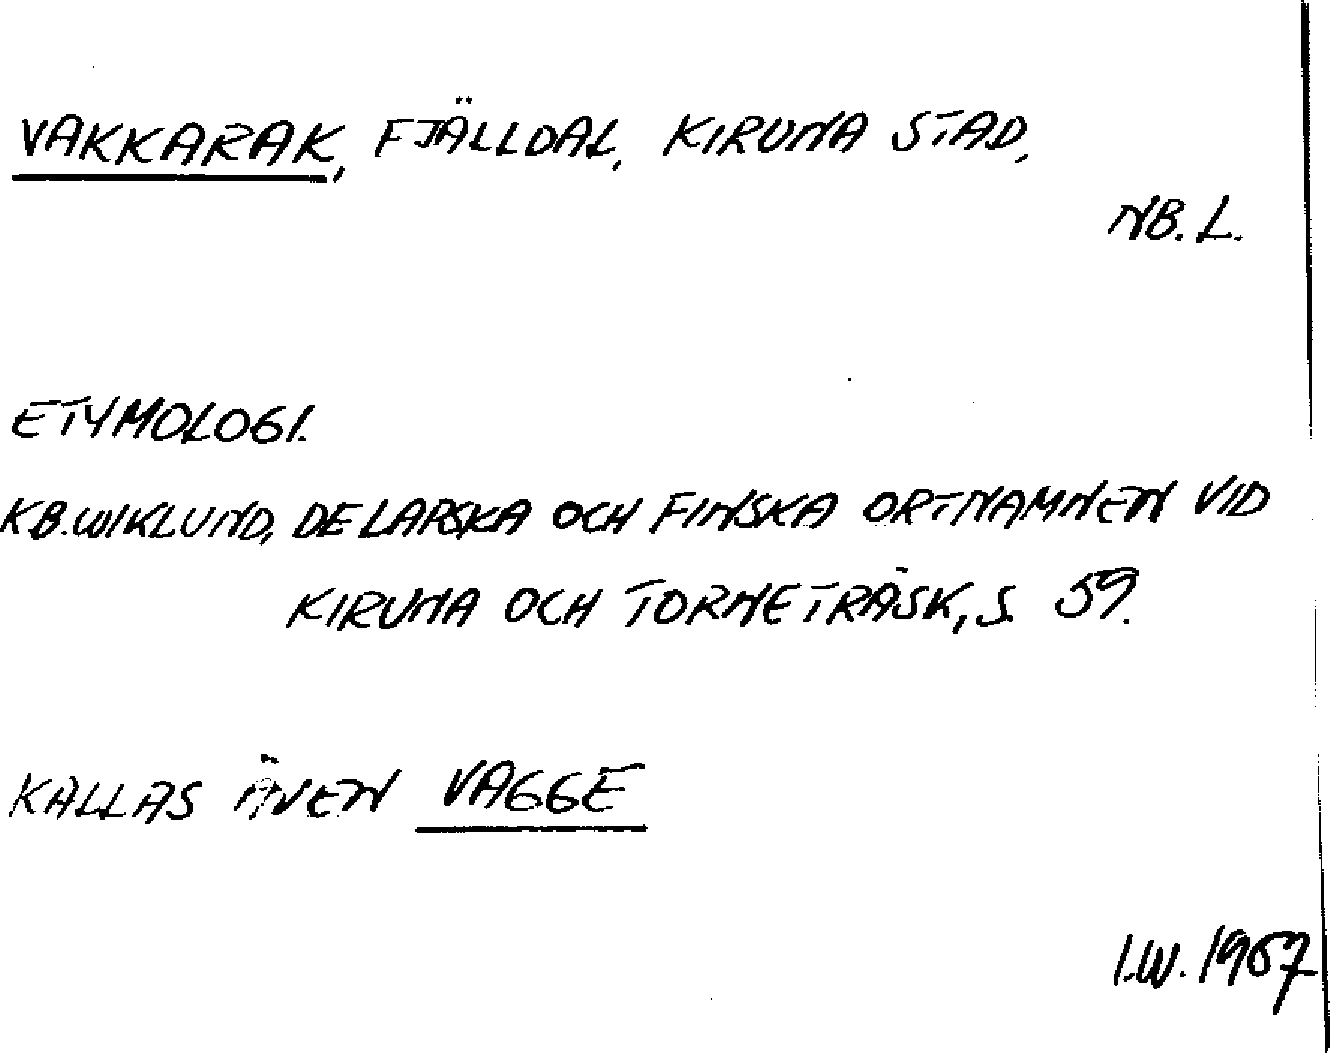 VAKKARAK, FJÄLLDAL, KIRUNA STAD,
NB. L.
ETYMOLOGI.
KB. WIKLUND, DE LAPSKA OCH FINSKA ORTNAMNEN VID
KIRUNA OCH TORNETRÄSK, S. 59.
KALLAS ÄVEN VAGGE
I.W. 1967